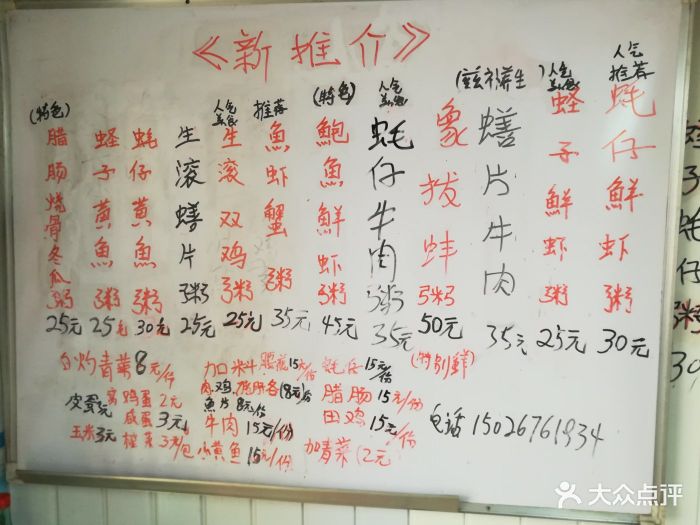 《新推介》
(特色)
腊肠烧骨冬瓜粥
25元
蛏子黄鱼粥
25元
蚝仔黄鱼粥
30元
生滚鳝片粥
25元
人气美食
生滚双鸡粥
25元
推荐
魚虾蟹粥
35元
(特色)
鲍魚鮮虾粥
45元
人气美食
蚝仔牛肉粥
35元
象拔蚌粥
50元
(兹补养生)
鳝片牛肉
35元
人气美食
蛏子鮮虾粥
25元
人气推荐
蚝仔鮮虾粥
30元
白灼青菜8元/份
皮蛋元
窝鸡蛋2元
咸蛋3元
玉米3元
榨菜3元/包
加口料
腰花15元/份
肉鸡
8元/份
魚片8元/份
牛肉15元/份
小黄魚15元/份
蚝仔15元/份
(特别鲜)
腊肠15元/份
田鸡15元/份
加青菜(2元
电话15026761934
蚝仔粥
30
大众点评